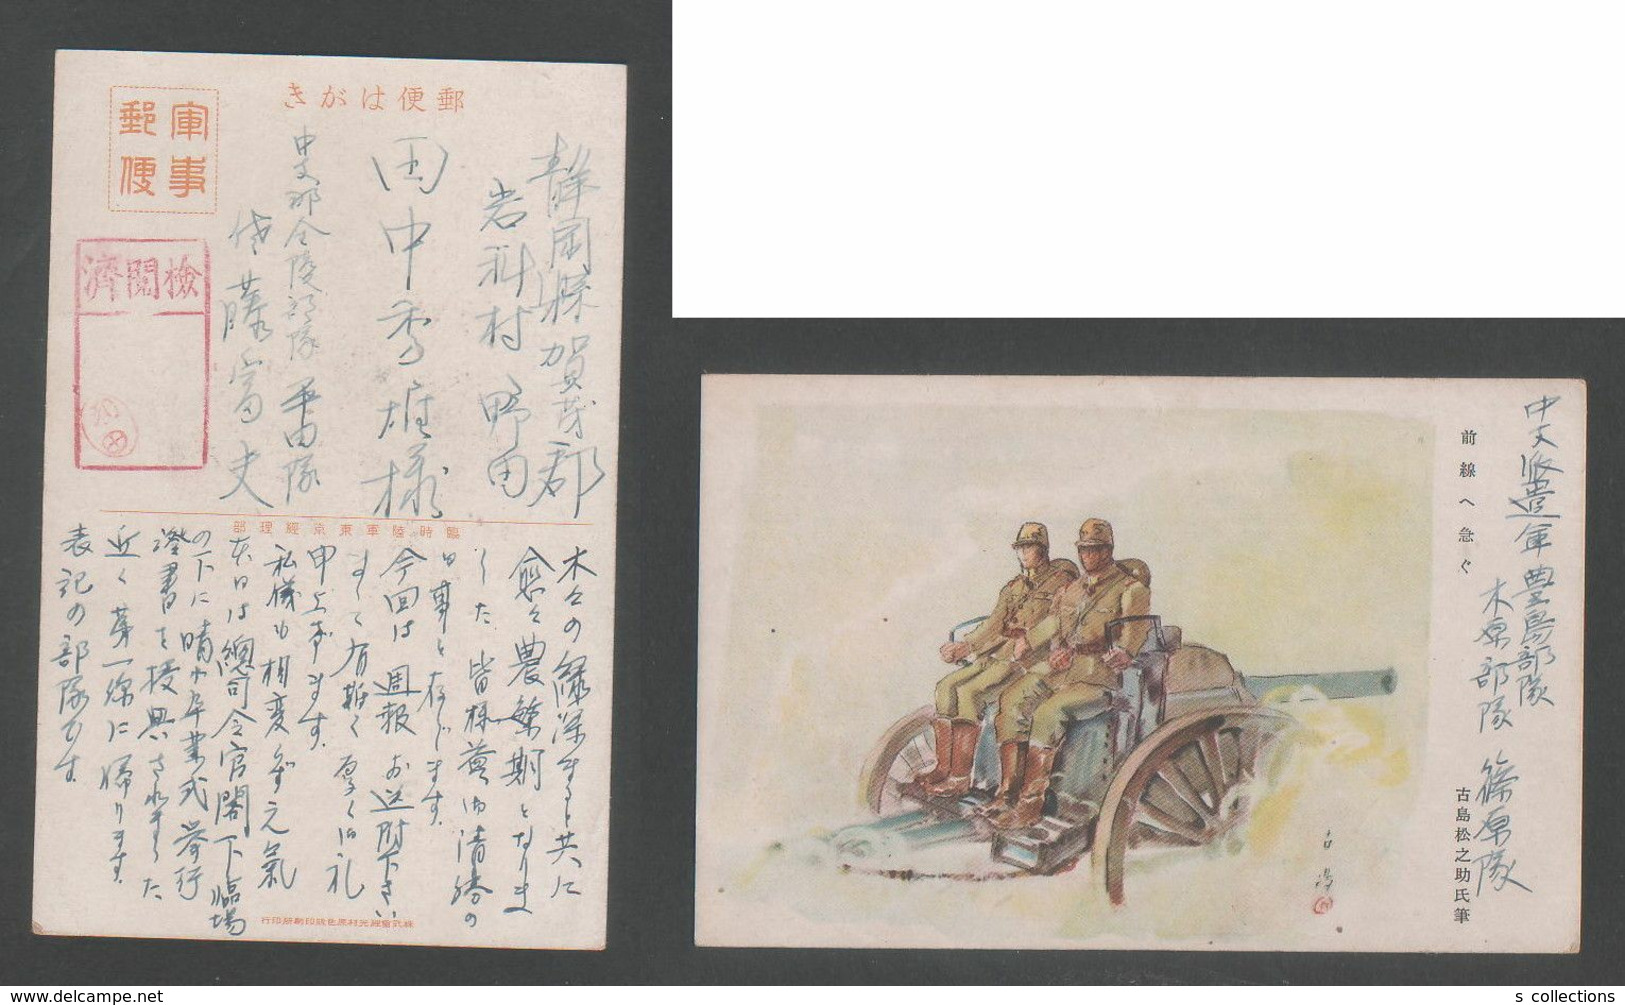 郵便はがき
軍事
郵便
檢閱濟
靜岡縣賀茂郡
岩科村野田
田中秀雄様
中支那全陵部隊平田隊
佐藤富史
臨時陸軍東京經理部
木々の緑深まると共に
愈々農繁期となりま
した 皆様益々御清勝の
御事と存じます。
今回は週報お送附下さい
まして有難く厚く御礼
申上げます。
私儀も相変らず元氣
本日は總司令官閣下臨場
の下に晴れの卒業式挙行
證書を授与されました
近く第一線に帰ります。
表記の部隊です。
前線へ急ぐ
古島松之助氏筆
中支派遣軍豊島部隊
木原部隊 篠原隊
s collections